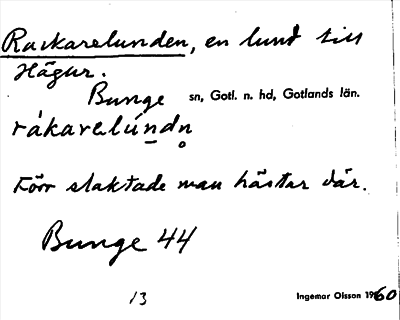 Rackarelunden, en lund till
Hägur.
Bunge sn, Gotl. n. hd, Gotlands län.
rákarelúndn̥
Förr slaktade man hästar där.
Bunge 44
13 Ingemar Olsson 1960